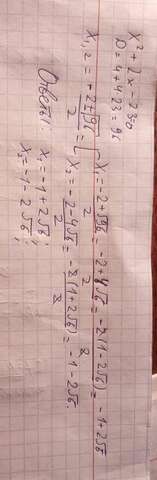 x² + 2x - 23=0
D = 4 + 4·23 = 96
x₁,₂ = (-2±√96)/2 = [ x₁ = (-2+√96)/2 = (-2+4√6)/2 = -2(1-2√6)/2 = -1+2√6
x₂ = (-2-4√6)/2 = -2(1+2√6)/2 = -1-2√6.
Ответ: x₁ = -1+2√6;
x₂ = -1-2√6;